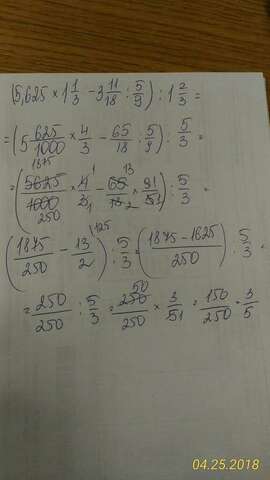 (5,625 × 1 1/3 − 3 11/18 : 5/9) : 1 2/3 =
= (5 625/1000 × 4/3 − 65/18 : 5/9) : 5/3 =
= (5625/1000 × 4/3 − 65/18 × 91/51) : 5/3 =
1875 1 13
250 1 2
(1875/250 − 13/2) 125 : 5/3 = (1875 − 1625/250) : 5/3 =
= 250/250 : 5/3 = 250/250 × 3/51 = 150/250 = 3/5
50
04.25.2018